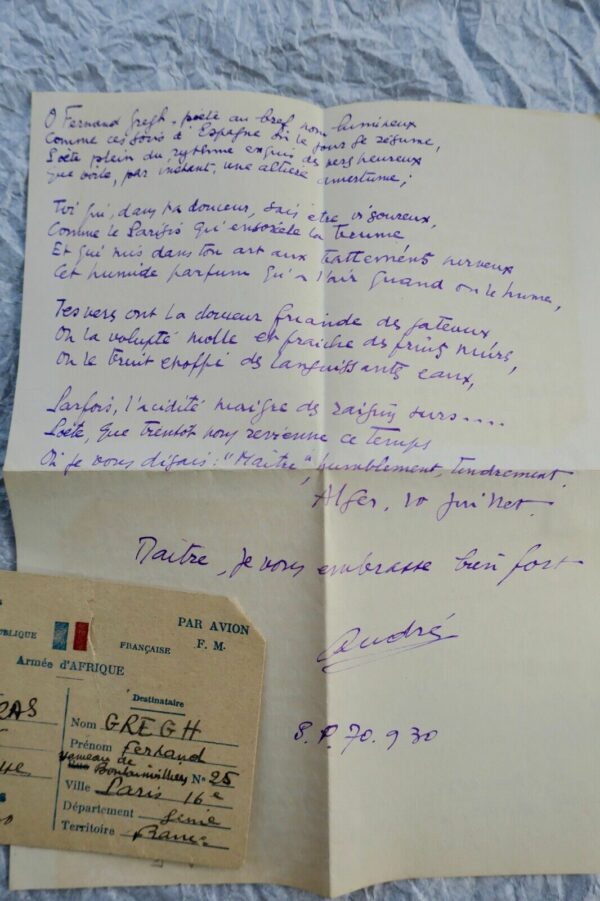 O Fernand Gregh, poète au bref nom lumineux
Comme ces soirs d'Espagne où le jour se résume,
Poète plein du rythme exquis des vers heureux
Que voile, par instant, une altière amertume ;
Toi qui, dans ta douceur, sais être vigoureux,
Comme le Parfois qui ensoleille la brume
Et qui mis dans ton art aux battements nerveux
Cet humide parfum qu'a l'air quand on le hume,
Tes vers ont la douceur friande des gateaux
Ou la volupté molle et fraîche des fruits mûrs,
Ou le bruit étoffé des languissantes eaux,
Parfois, l'acidité maigre des raisins surs.....
Poète, que bientôt nous revienne ce temps
Où je vous disais : "Maître", humblement, tendrement.
Alger, 10 juillet.
Maître, je vous embrasse bien fort
André
S.P. 70.930
PUBLIQUE FRANÇAISE
PAR AVION
F. M.
Armée d'AFRIQUE
Destinataire
Nom GREGH
Prénom Fernand
Hameau de
Boulainvilliers N° 25
Ville Paris 16e
Département Seine
Territoire France